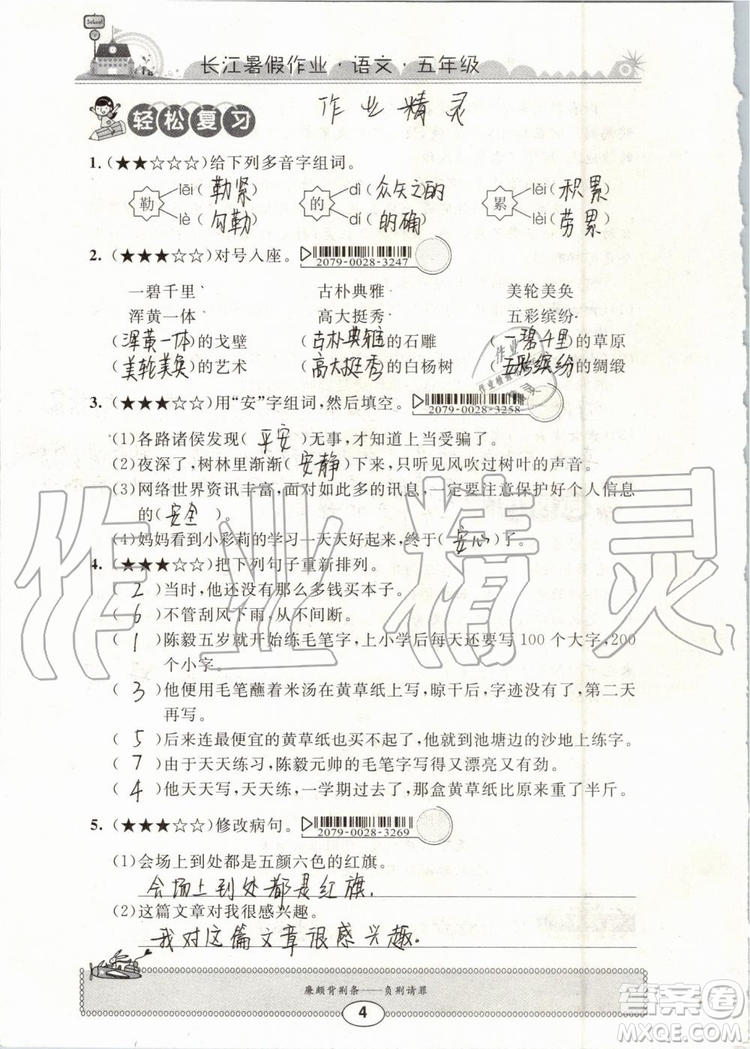 School
长江暑假作业·语文·五年级
轻松复习
作业精灵
1.(★★☆☆☆)给下列多音字组词。
勒 lēi(勒紧) lè(勾勒) 的 dì(众矢之的) dí(的确) 累 lěi(积累) lèi(劳累)
2.(★★★☆☆)对号入座。 2079-0028-3247
一碧千里 古朴典雅 美轮美奂
浑黄一体 高大挺秀 五彩缤纷
(浑黄一体)的戈壁 (古朴典雅)的石雕 (一碧千里)的草原
(美轮美奂)的艺术 (高大挺秀)的白杨树 (五彩缤纷)的绸缎
3.(★★★☆☆)用“安”字组词,然后填空。 2079-0028-3258
(1)各路诸侯发现(平安)无事,才知道上当受骗了。
(2)夜深了,树林里渐渐(安静)下来,只听见风吹过树叶的声音。
(3)网络世界资讯丰富,面对如此多的讯息,一定要注意保护好个人信息
的(安全)。
(4)妈妈看到小彩莉的学习一天天好起来,终于(安心)了。
4.(★★★★☆)把下列句子重新排列。
(2)当时,他还没有那么多钱买本子。
(6)不管刮风下雨,从不间断。
(1)陈毅五岁就开始练毛笔字,上小学后每天还要写100个大字,200
个小字。
(3)他便用毛笔蘸着米汤在黄草纸上写,晾干后,字迹没有了,第二天
再写。
(5)后来连最便宜的黄草纸也买不起了,他就到池塘边的沙地上练字。
(7)由于天天练习,陈毅元帅的毛笔字写得又漂亮又有劲。
(4)他天天写,天天练,一学期过去了,那本黄草纸比原来重了半斤。
5.(★★★☆☆)修改病句。 2079-0028-3269
(1)会场上到处都是五颜六色的红旗。
会场上到处都是红旗.
(2)这篇文章对我很感兴趣。
我对这篇文章很感兴趣.
廉颇背荆条——负荆请罪
4
作业精灵
答案圈
MXQE.COM